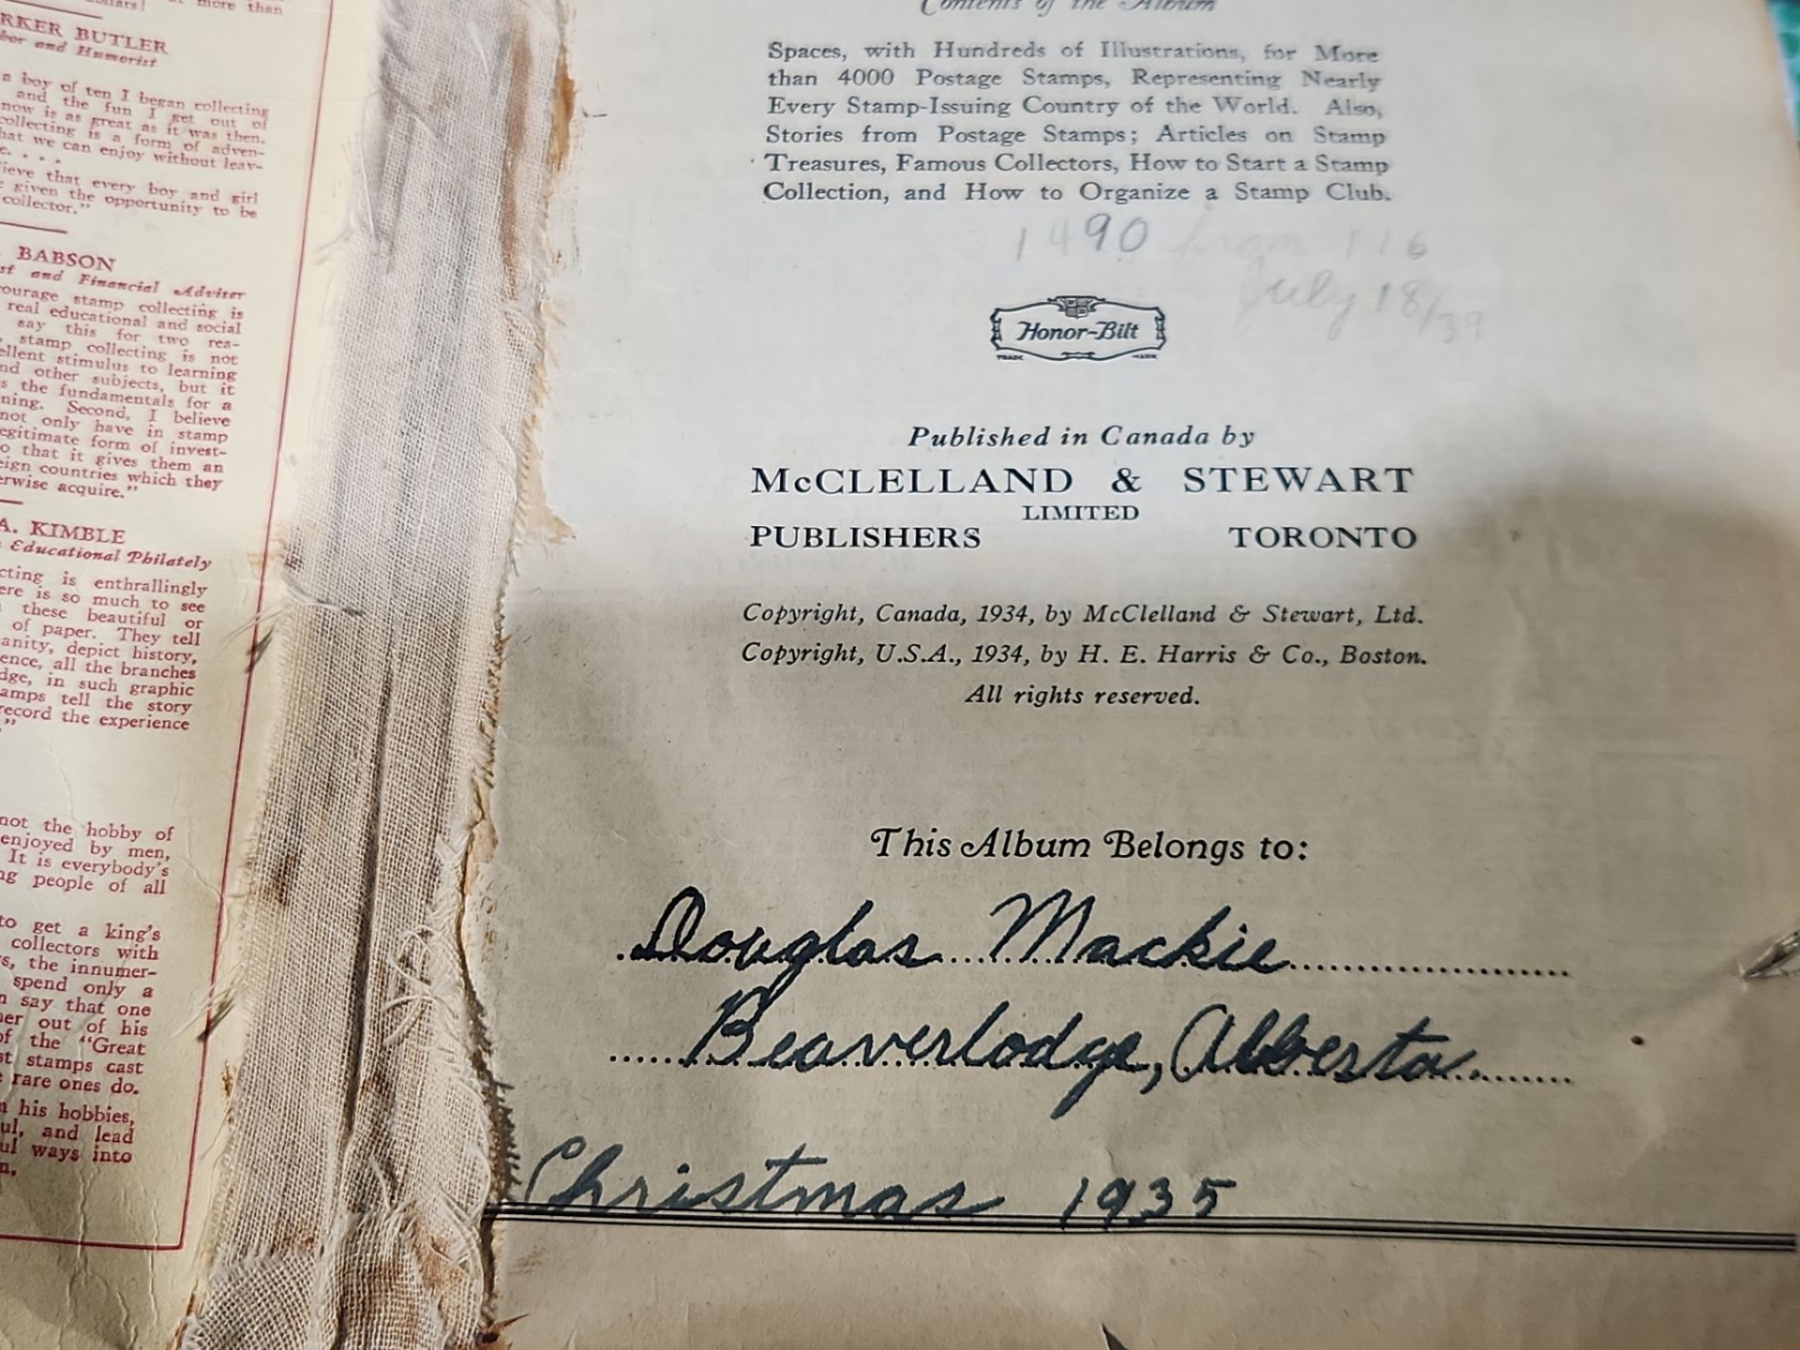 more than
RKER BUTLER
and Humorist
a boy of ten I began collecting
and the fun I get out of
now is as great as it was then.
collecting is a form of adven-
hat we can enjoy without leav-
e. . . .
ieve that every boy and girl
given the opportunity to be
collector."
BABSON
st and Financial Adviser
ourage stamp collecting is
real educational and social
say this for two rea-
stamp collecting is not
ellent stimulus to learning
nd other subjects, but it
s the fundamentals for a
ning. Second, I believe
not only have in stamp
egitimate form of invest-
o that it gives them an
eign countries which they
erwise acquire."
A. KIMBLE
Educational Philately
cting is enthrallingly
ere is so much to see
these beautiful or
of paper. They tell
anity, depict history,
ence, all the branches
dge, in such graphic
amps tell the story
record the experience
"
not the hobby of
enjoyed by men,
It is everybody's
ng people of all
to get a king's
collectors with
s, the innumer-
spend only a
n say that one
her out of his
of the "Great
st stamps cast
rare ones do.
his hobbies,
ul, and lead
ul ways into
n.
Contents of the Album
Spaces, with Hundreds of Illustrations, for More
than 4000 Postage Stamps, Representing Nearly
Every Stamp-Issuing Country of the World. Also,
Stories from Postage Stamps; Articles on Stamp
Treasures, Famous Collectors, How to Start a Stamp
Collection, and How to Organize a Stamp Club.
1490 from 116
July 18/39
Honor-Bilt
TRADE MARK
Published in Canada by
McCLELLAND & STEWART
LIMITED
PUBLISHERS TORONTO
Copyright, Canada, 1934, by McClelland & Stewart, Ltd.
Copyright, U.S.A., 1934, by H. E. Harris & Co., Boston.
All rights reserved.
This Album Belongs to:
Douglas Mackie
Beaverlodge, Alberta
Christmas 1935